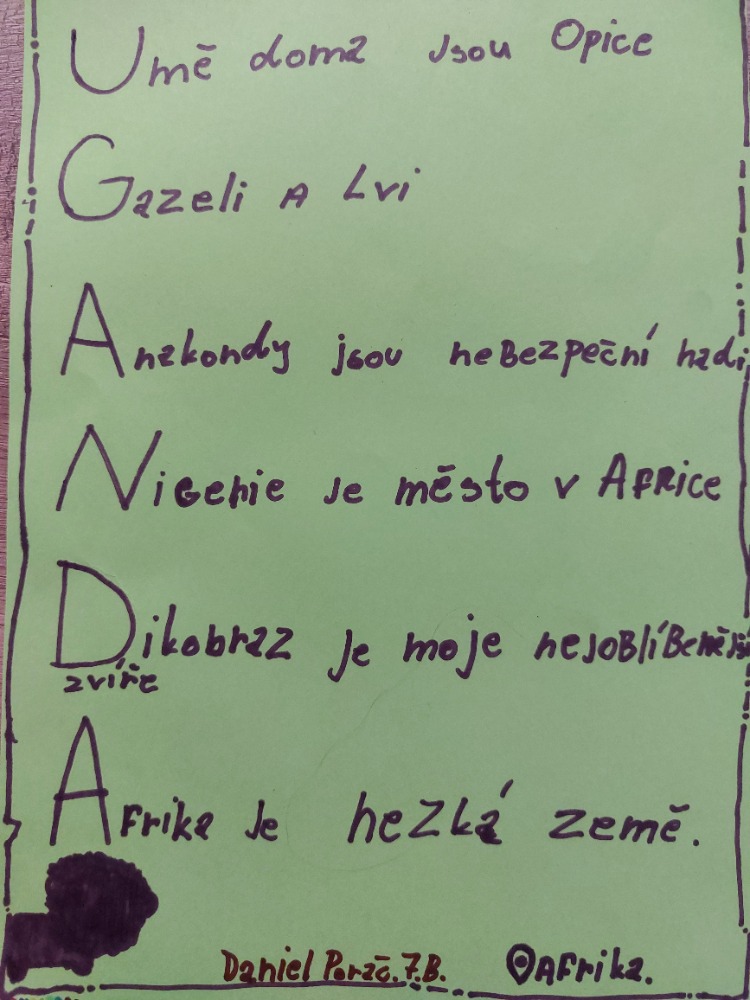 Umě doma Jsou Opice
Gazeli A Lvi
Anakondy jsou neBezpeční hadi
Nigerie Je město v AFRICE
Dikobraz Je moje nejoBlíBenější
zvíře
Afrika Je hezká země.
Daniel Porač.7.B. AFrika.